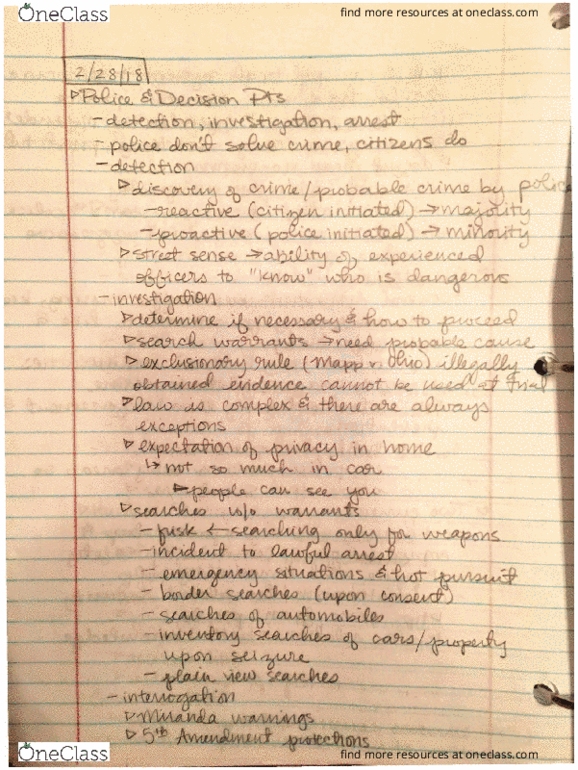 OneClass
find more resources at oneclass.com
2/28/18
▷Police & Decision Pts
- detection, investigation, arrest
- police don't solve crime, citizens do
- detection
▷discovery of crime/probable crime by police
- reactive (citizen initiated) → majority
- proactive (police initiated) → minority
▷street sense → ability of experienced
officers to "know" who is dangerous
- investigation
▷determine if necessary & how to proceed
▷search warrants → need probable cause
▷exclusionary rule (Mapp v. Ohio) illegally
obtained evidence cannot be used at trial
▷law is complex & there are always
exceptions
▷expectation of privacy in home
↳ not so much in car
▷people can see you
▷searches w/o warrants
- fusk ← searching only for weapons
- incident to lawful arrest
- emergency situations & hot pursuit
- border searches (upon consent)
- searches of automobiles
- inventory searches of cars/property
upon seizure
- plain view searches
- interrogation
▷Miranda warnings
▷5th Amendment protections
OneClass
find more resources at oneclass.com